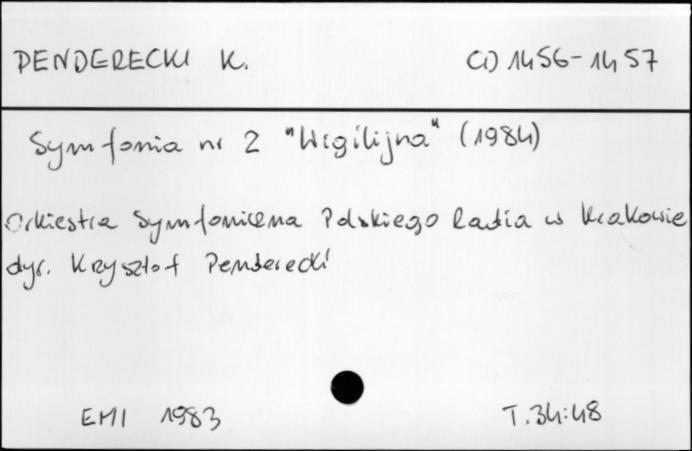 PENDERECKI K. CD 1456-1457
Symfonia nr 2 "Wigilijna" (1984)
Orkiestra Symfoniczna Polskiego Radia w Krakowie
dyr. Krzysztof Penderecki
EMI 1983 T.34:48